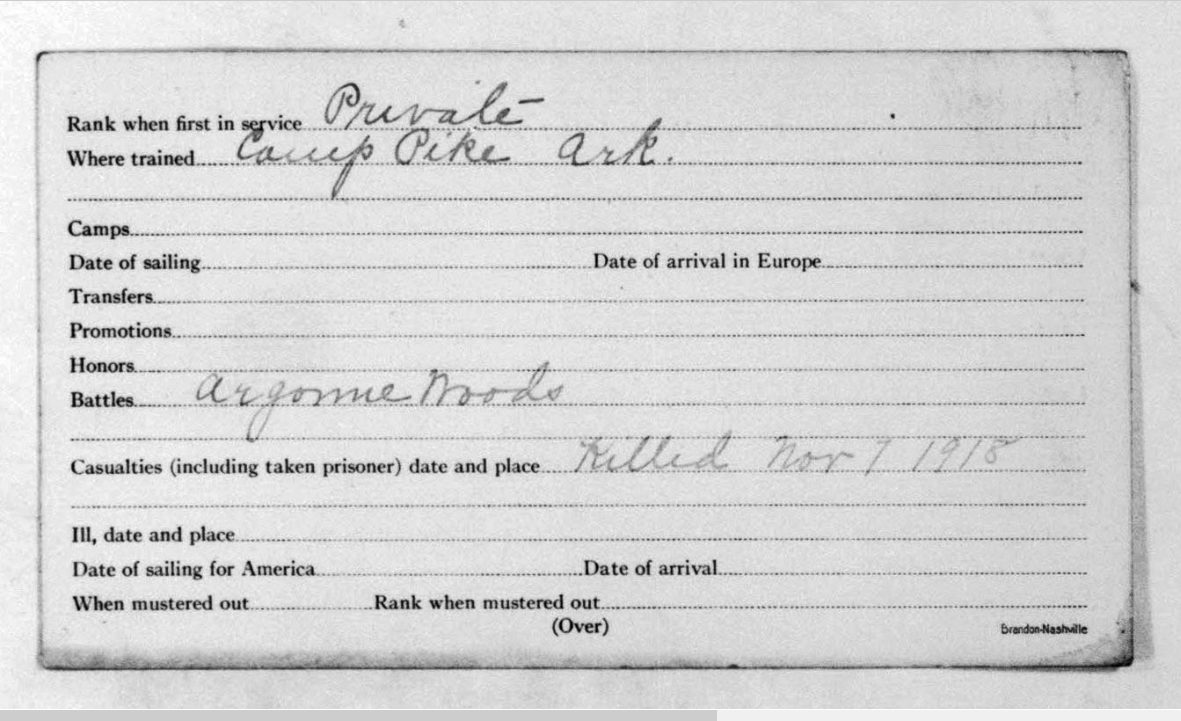 Rank when first in service Private
Where trained Camp Pike Ark.
Camps
Date of sailing Date of arrival in Europe
Transfers
Promotions
Honors
Battles Argonne Woods
Casualties (including taken prisoner) date and place Killed Nov 7 1918
Ill, date and place
Date of sailing for America Date of arrival
When mustered out Rank when mustered out
(Over)
Brandon-Nashville